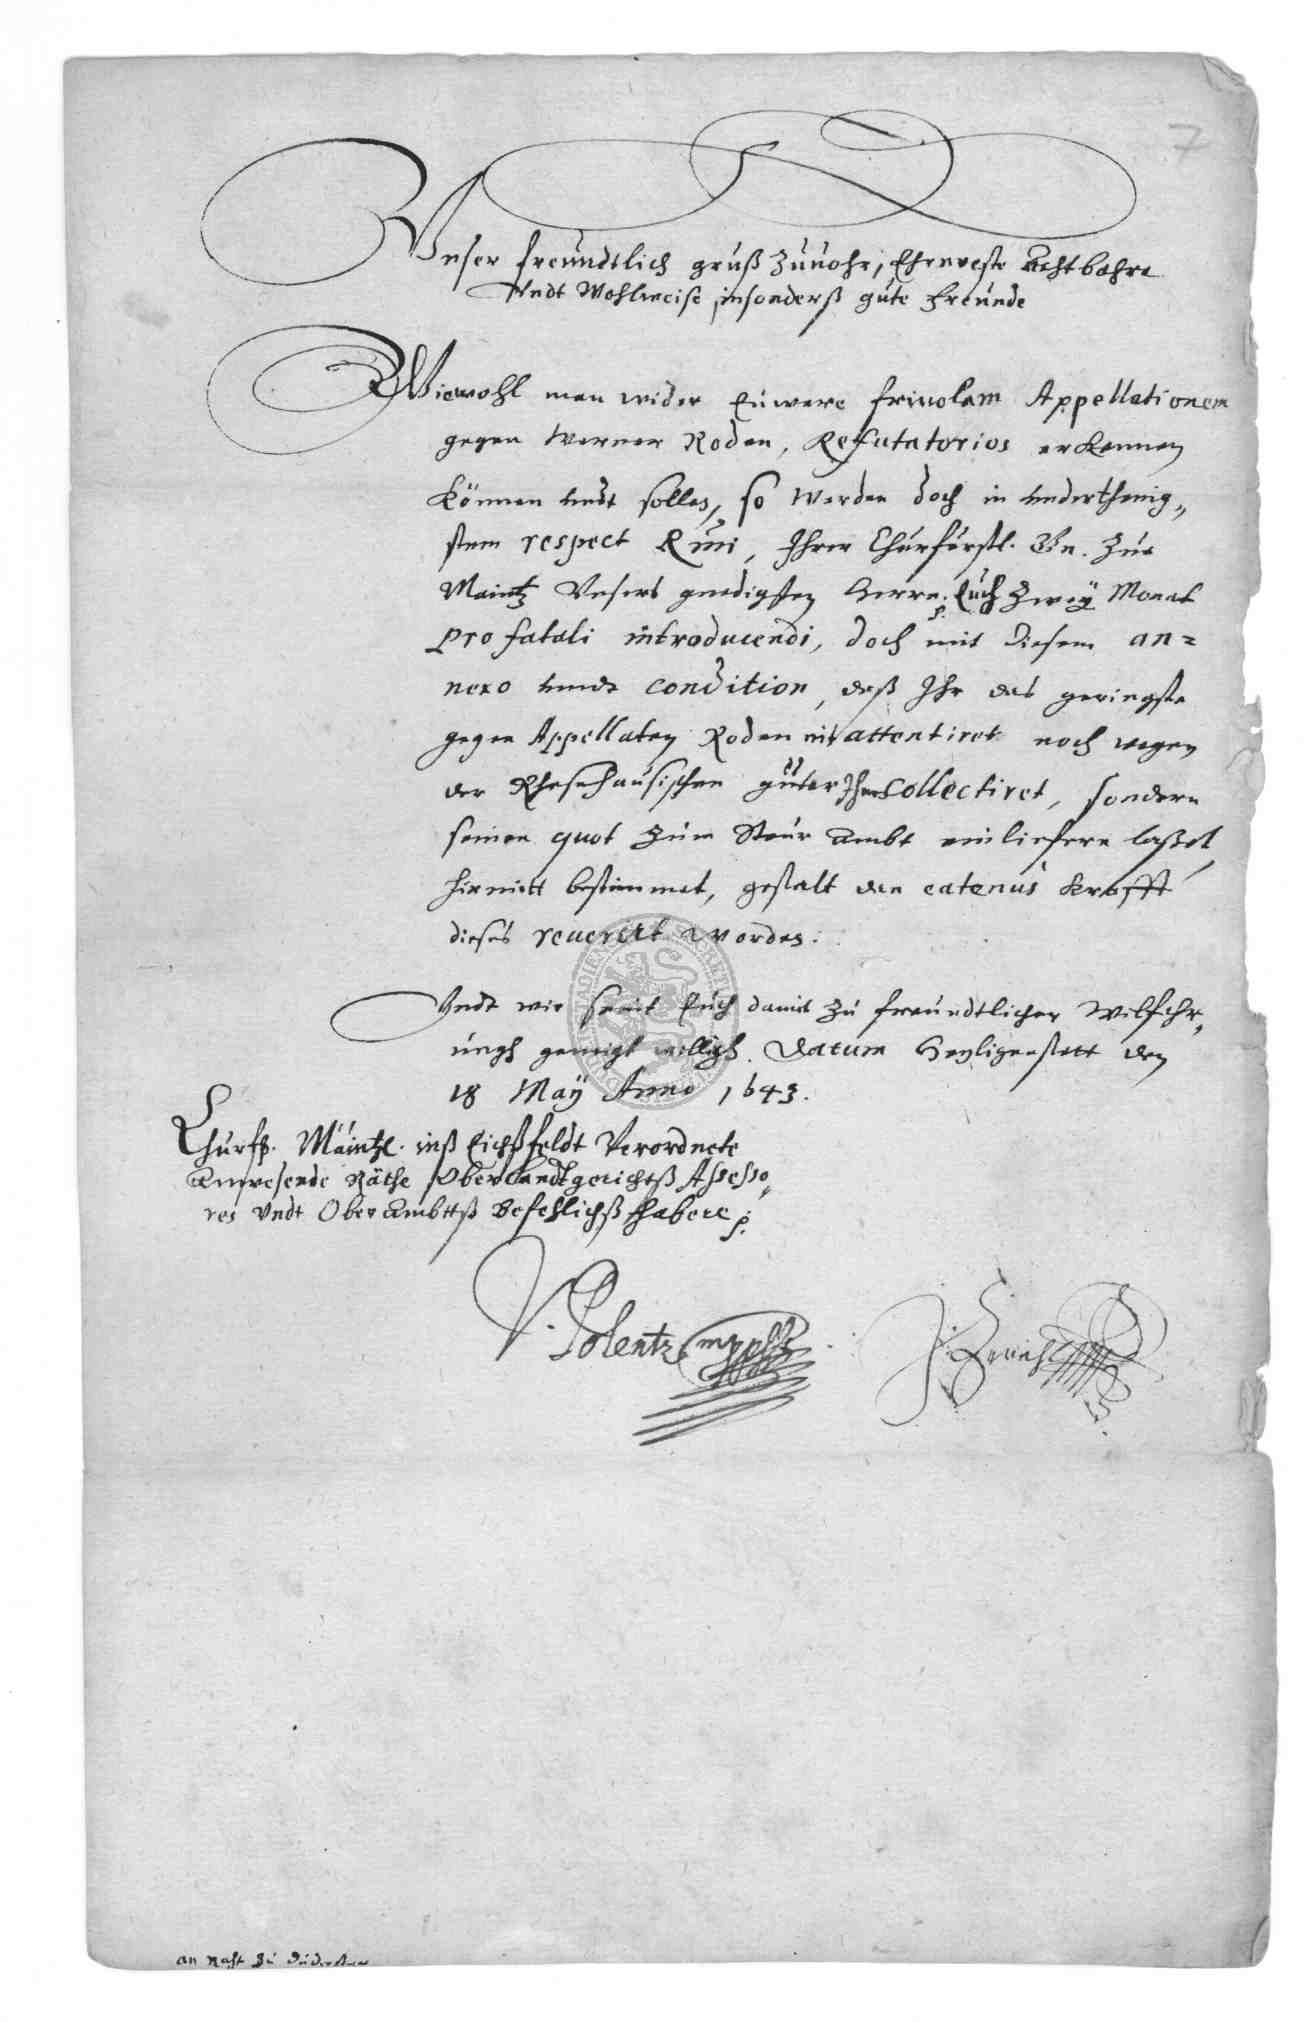 7
Unser freundtlich gruß zuuohr, Ehrnveste Achtbahre
Undt Wohlweise, insonderß gute Freunde
Wiewohl man wider Euwere frivolam Appellationem
gegen Werner Roden, Refutatorios erkennen
können undt sollen, so werden doch in underthenig„
stem respect Rmi, Ihrer Churfürstl. Gn. zue
Maintz Unsers gnedigsten Herrn p. Euch zwey Monat
pro fatali introducendi, doch mit diesem an=
nexo undt condition, daß Ihr das geringste
gegen Appellaten Roden nit attentiret noch wegen
der Gütter Ihn collectiret, sondern
seinen quot zum Steur Ambt einliefern laßet,
hiemitt bestimmet, gestalt den eatenus krafft
dieses reuerirt worden.
Undt wir seint Euch damit zu freundtlicher Wilfehr„
ungh geneigt willigh. Datum Heyligenstatt den
18 May Anno 1643.
Churfß. Mäintzl. inß Eichßfeldt Verordnete
Anwesende Räthe Oberlandtgerichtß Assesso„
res Undt Oberambttß befehlichß habere p.
V. Polentz mppss
an Raht zu Duderstat